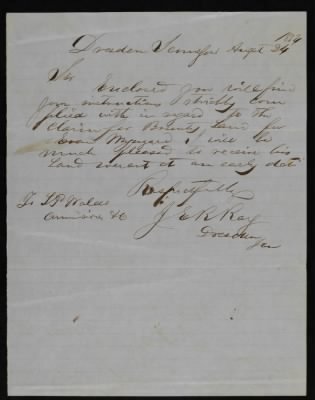 Dresden Tenessee Augst 24 1854
Sir Enclosed you will find
your instructions strictly com
plied with in regard to the
claim for Bounty Land for
I will be
much pleased to receive his
Land warrant at an early date
Respectfully
To
J E R Ray
Dresden
Ten